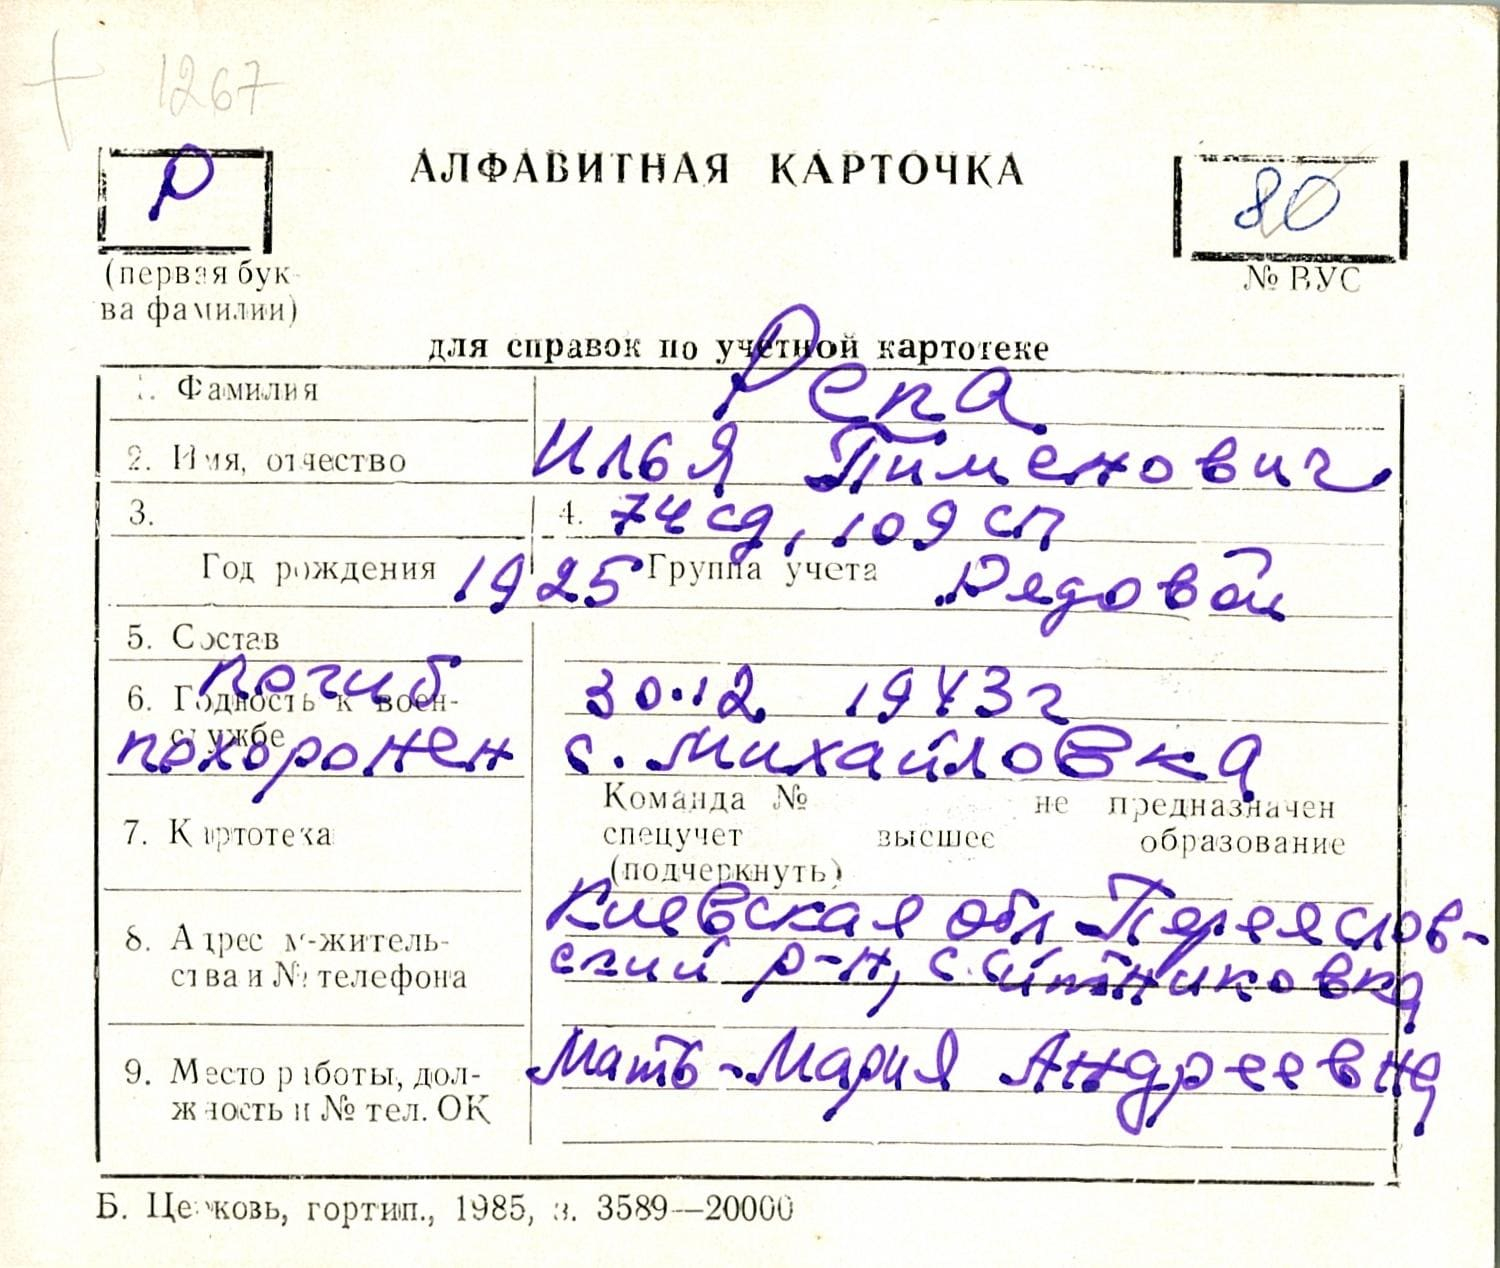 1267
Р
АЛФАВИТНАЯ КАРТОЧКА
80
(первая бук-
ва фамилии)
№ ВУС
для справок по учетной картотеке
1. Фамилия Репа
2. Имя, отчество Илья Пименович
3. 4. 74 сд, 109 сп
Год рождения 1925 Группа учета Рядовой
5. Состав
погиб 30.12 1943 г
6. Годность к воен-
службе
похоронен с. Михайловка
Команда № не предназначен
7. Картотека спецучет высшее образование
(подчеркнуть)
Киевская обл Переяслов-
8. Адрес м-житель-
ский р-н, с.
ства и № телефона
Мать - Мария Андреевна
9. Место работы, дол-
жность и № тел. ОК
Б. Церковь, гортип., 1985, з. 3589—20000